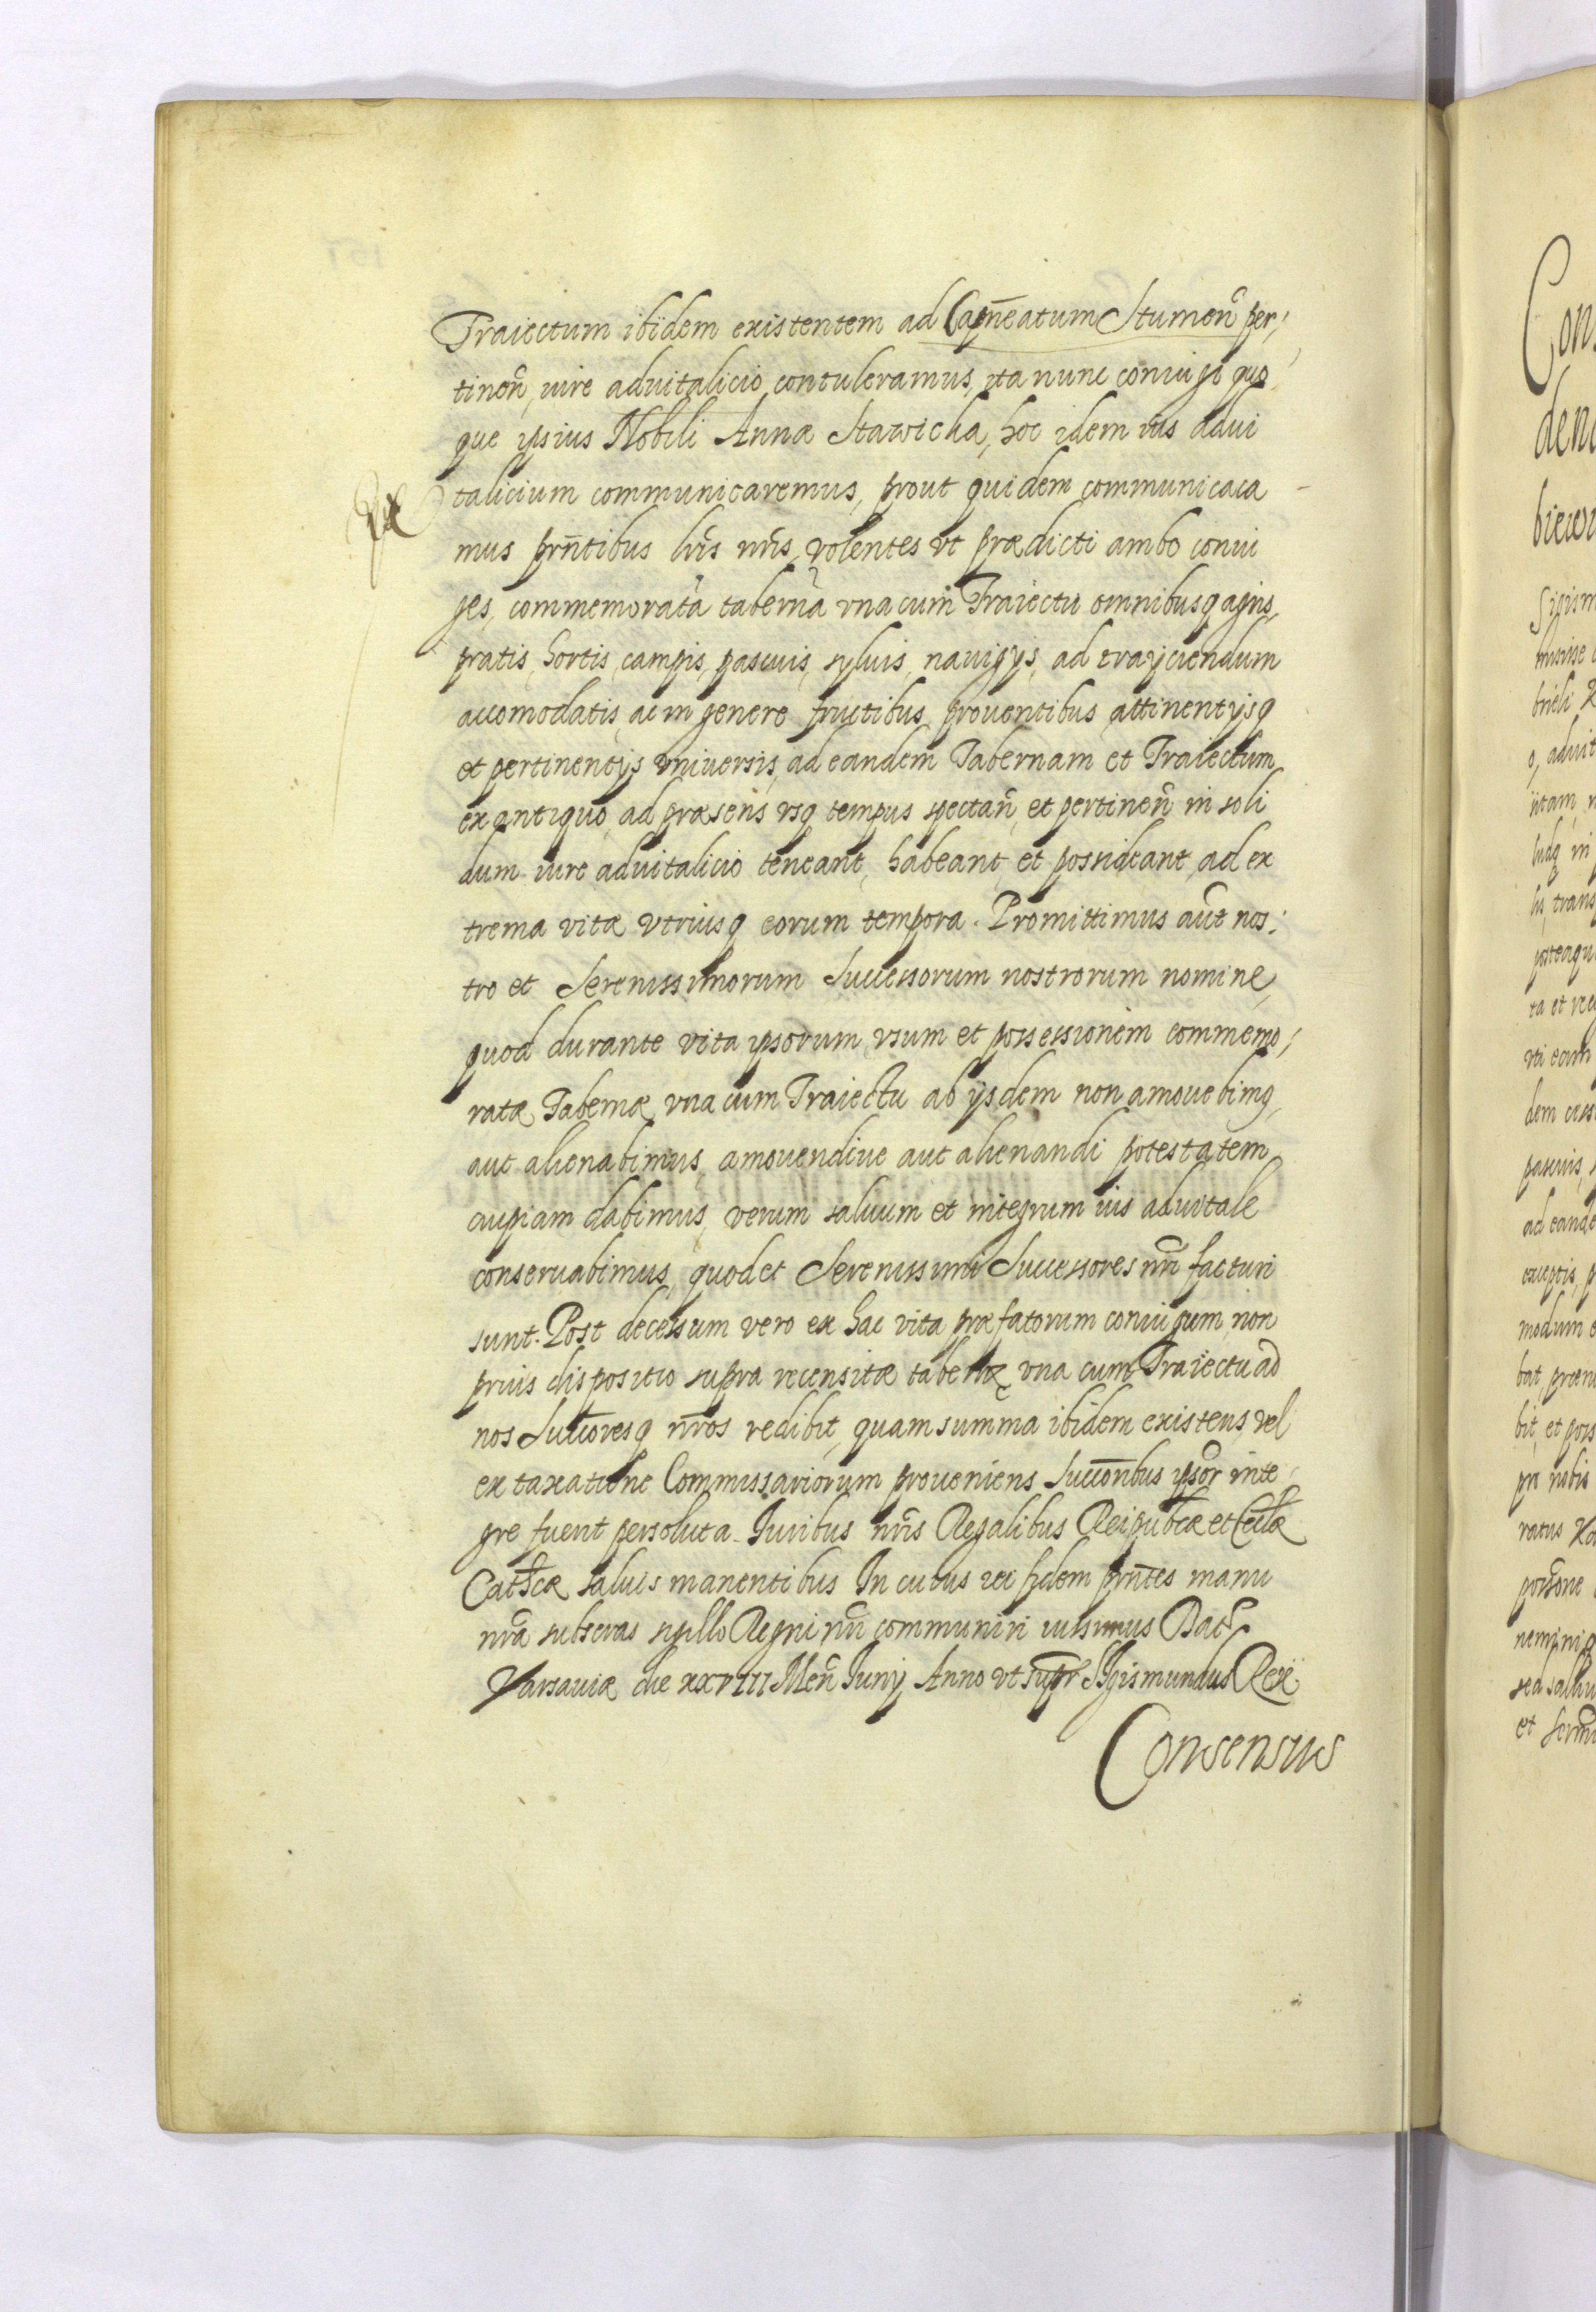 Traiectum ibidem existentem ad Capneatum Stumen̄ per:
tinen̄, iure aduitalicio contuleramus, ita nunc coniugi quo
que ipsius Nobili Annæ Stawicka, hoc idem ius adui
talicium communicaremus, prout quidem communicaca
mus prn̄tibus lr̄is nr̄is, volentes vt prædicti ambo coniu
ges, commemorata taberna vna cum Traiectu omnibusq agris,
pratis, hortis, campis, pascuis, syluis, nauigijs, ad traijciendum
accomodatis, ac in genere fructibus prouentibus attinentijsq
et pertinentijs vniuersis, ad eandem Tabernam et Traiectum
ex antiquo, ad præsens vsq tempus spectan̄, et pertinen̄ in soli
dum iure aduitalicio teneant, habeant, et possideant, ad ex
trema vitæ vtriusq eorum tempora. Promittimus aūt nos:
tro et Serenissimorum Successorum nostrorum nomine,
quod durante vita ipsorum, vsum et possessionem commemo:
ratæ Tabernæ vna cum Traiectu ab ijsdem non amouebimq,
aut alienabimus, amouendiue aut alienandi potestatem
cuipiam dabimus, verum saluum et integrum ius aduitale
conseruabimus, quod et Serenissimi Successores nr̄i facturi
sunt. Post decessum vero ex hac vita præfatorum coniugum non
prius dispositio supra recensitæ tabernæ vna cum Traiectu ad
nos Succoresq nr̄os redibit, quam summa ibidem existens, vel
ex taxatione Commissariorum proueniens Succōribus ipsor̄ inte
gre fuerit persoluta. Iuribus nr̄is Regalibus Reipublcæ et Ecclæ
Cathcæ saluis manentibus In cuius rei fidem prn̄tes manu
nr̄a subscras sigillo Regni nr̄i communiri iussimus Dat
Varsauiæ die XXVIII Men̄ Iunij Anno vt supr Sigismundus Rex
Consensus